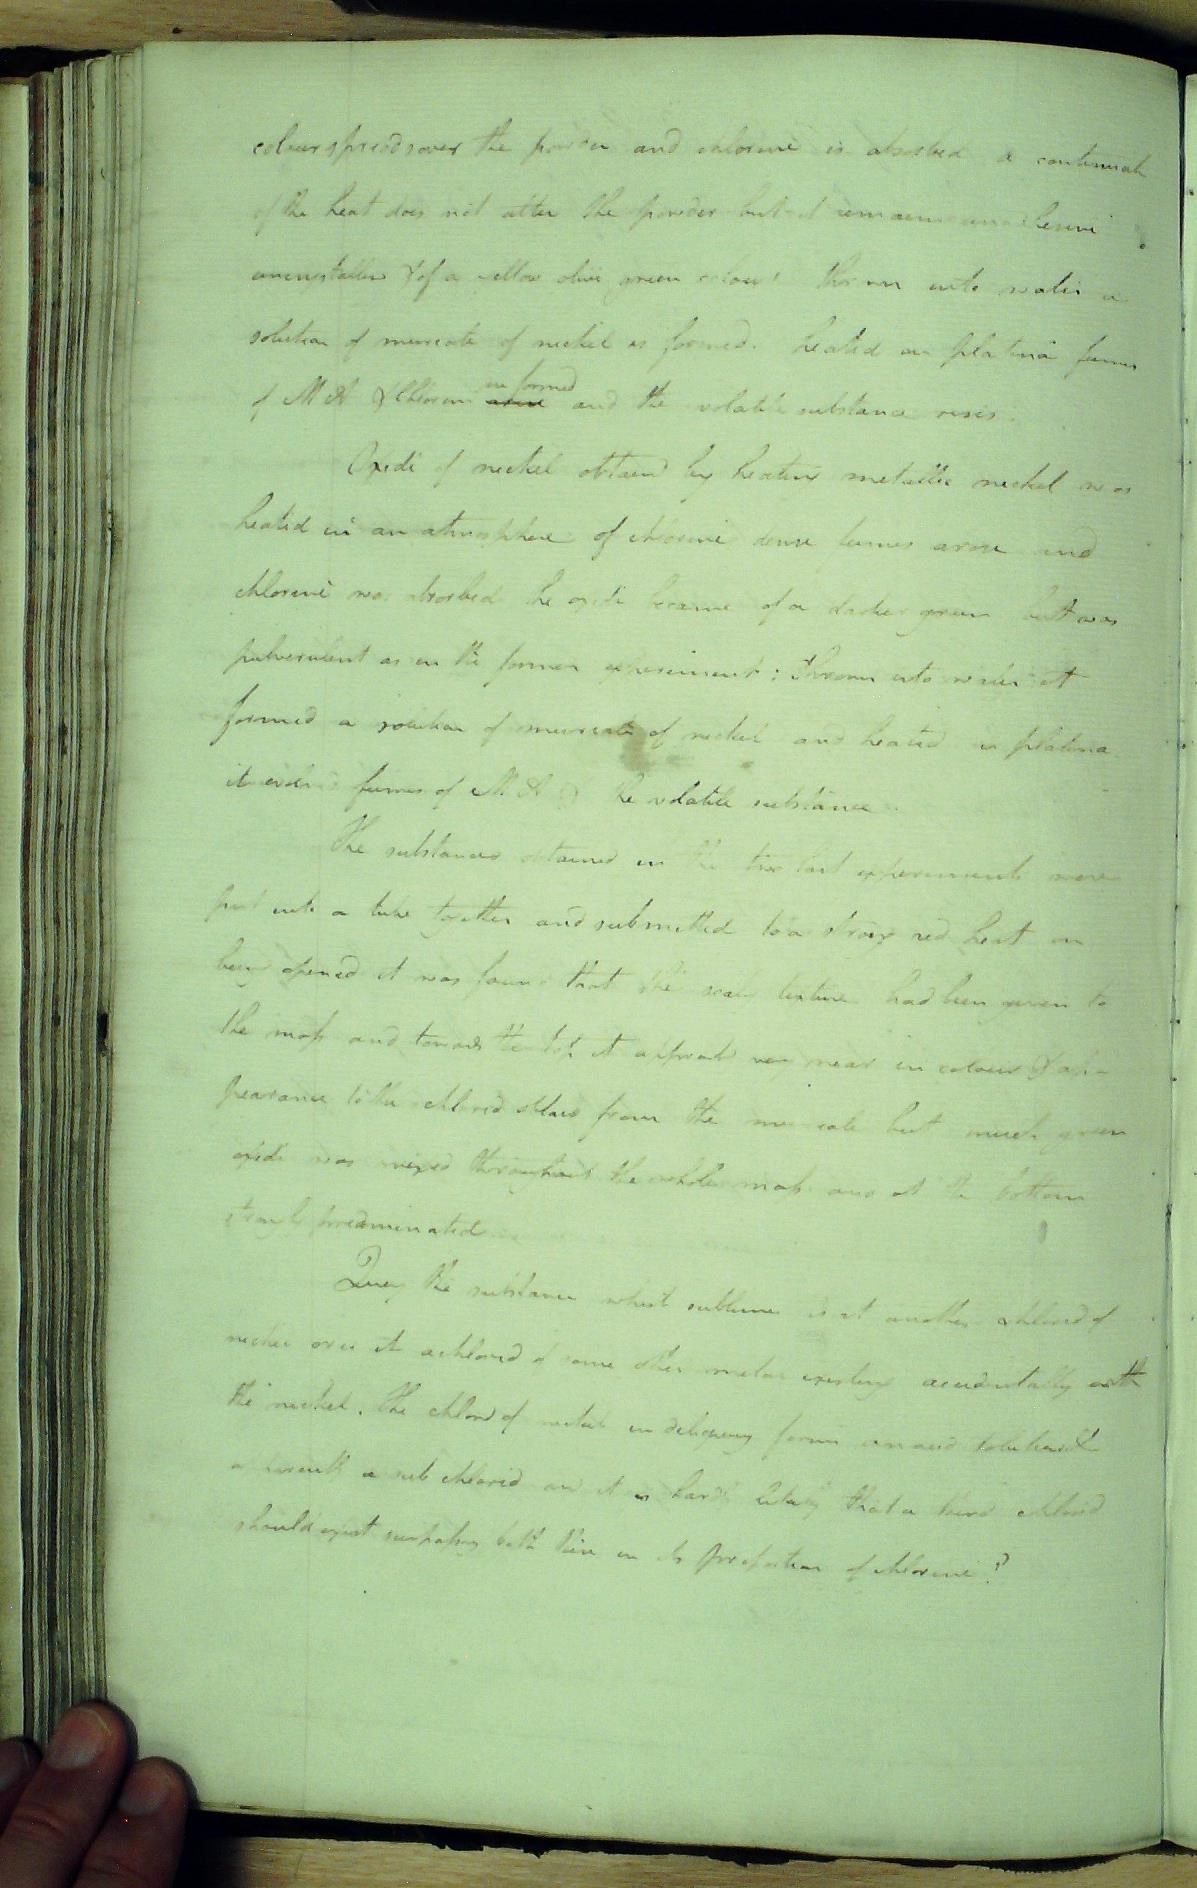 colour spreads over the powder and chlorine is absorbed a continuah
of the heat does not alter the powder but it remains
uncrystalline & of a yellow olive green colour thrown into water a
solution of muriate of nickel is formed. heated on platina fumes
of M A & Chlorine are formed and the volatile substance rises.
Oxide of nickel obtaind by heating metallic nickel was
heated in an atmosphere of chlorine dense fumes arose and
chlorine was absorbed the oxide became of a darker green but was
pulverulent as in the former experiment: thrown into water it
formed a solution of muriate of nickel and heated in platina
it evolved fumes of M A & the volatile substance.
The substances obtained in the two last experiments were
put into a tube together and submitted to a strong red heat on
being opened it was found that the scaly texture had been given to
the mass and towards the top it approach very near in colour & ap-
pearance to the chlorid obtaid from the muriate but much green
oxide was mixed throughout the whole mass and at the bottom
strongly predominated
Query the substance which sublimes is it another chlorid of
nickel or is it a chlorid of some other metal existing accidentally with
the nickel. The chlorid of nickel in forms an acid
a sub chlorid and it is hardly likely that a third chlorid
should exist surpassing both these in its proportion of chlorine?